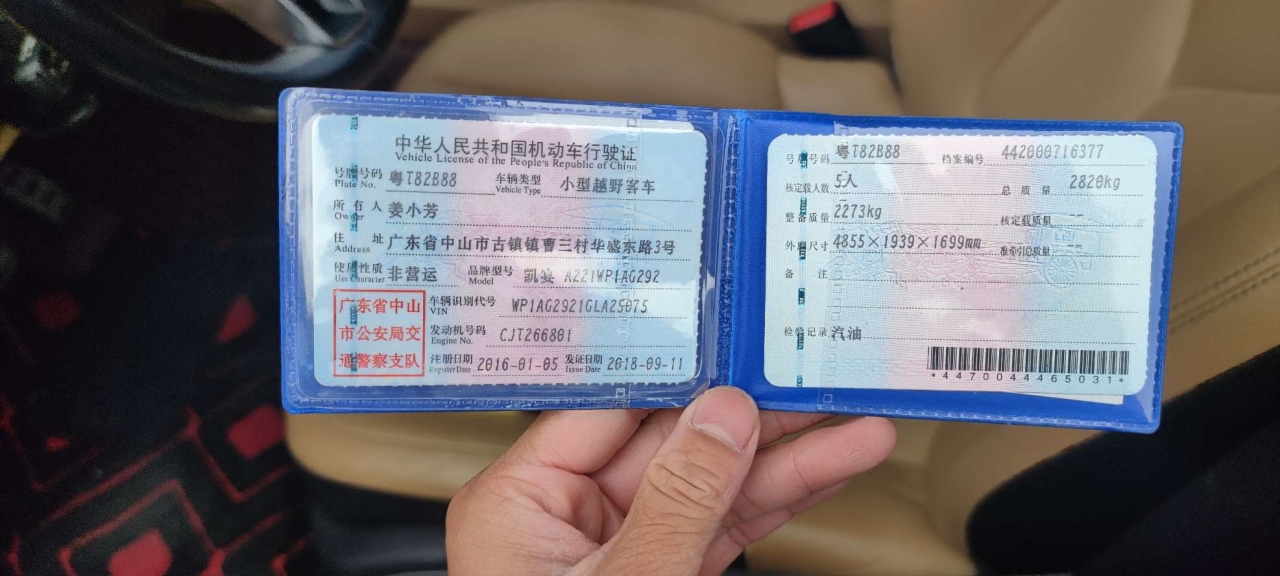 中华人民共和国机动车行驶证
Vehicle License of the People's Republic of China
号牌号码 粤T82B88 车辆类型 小型越野客车
Plate No. Vehicle Type
所有人 姜小芳
Owner
住址 广东省中山市古镇镇曹三村华盛东路3号
Address
使用性质 非营运 品牌型号 凯宴 A221WP1AG292
Use Character Model
广东省中山
市公安局交
通警察支队
车辆识别代号 WP1AG2921GLA25075
VIN
发动机号码 CJT266801
Engine No.
注册日期 2016-01-05 发证日期 2018-09-11
Register Date Issue Date
号牌号码 粤T82B88 档案编号 442000716377
核定载人数 5人 总质量 2820kg
整备质量 2273kg 核定载质量 --
外廓尺寸 4855×1939×1699mm 准牵引总质量 --
备注
检验记录 汽油
*4470044465031*